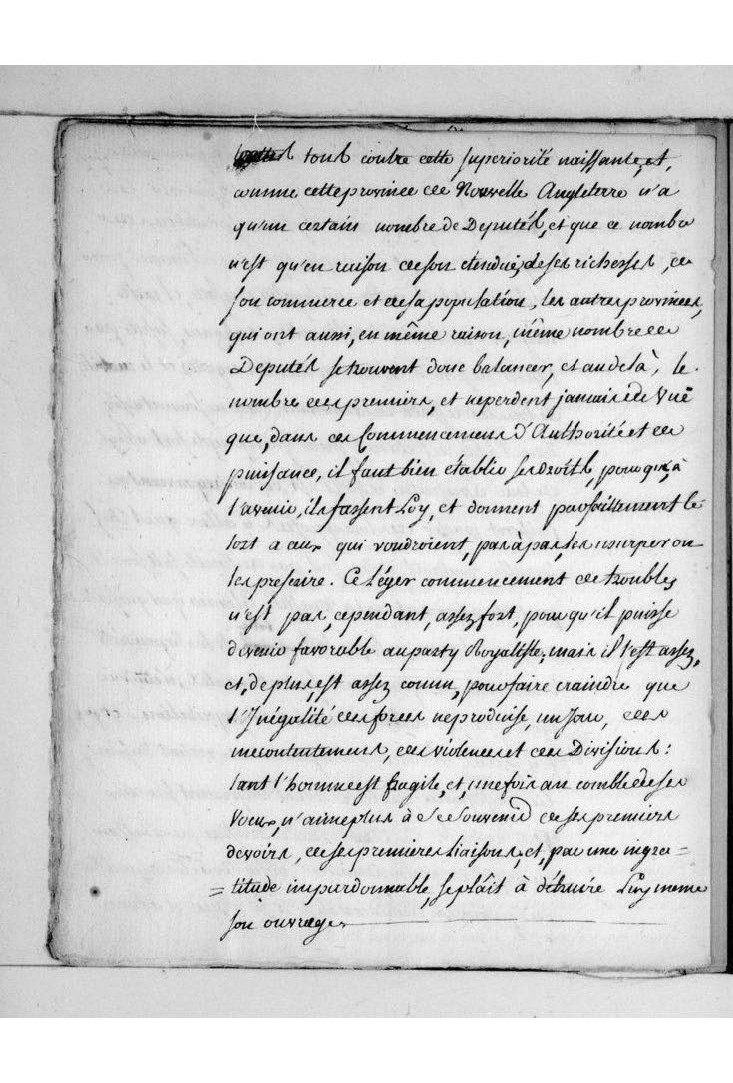 tous contre cette superiorité naissante, et,
comme cette province de Nouvelle Angleterre n'a
qu'un certain nombre de Deputés, et que ce nombre
n'est qu'en raison de son etendue, de ses richesses, de
son commerce et de sa population, les autres provinces,
qui ont aussi, en même raison, même nombre de
Deputés se trouvent donc balancer, et au dela, le
nombre des premiers, et ne perdent jamais de Vuë
que, dans ces Commencemens d'Authorité et de
puissance, il faut bien établir ses droits, pour qu'à
l'avenir, ils fassent Loy, et donnent parfaittement le
tort a ceux qui voudroient, pas à pas, les usurper ou
les prescrire. Ce léger commencement de troubles
n'est pas, cependant, assez fort, pour qu'il puisse
devenir favorable au party Royaliste; mais il l'est assez,
et, de plus, est assez connu, pour faire craindre que
l'Inégalité des forces ne produise, un Jour, des
mecontentemens, des violences et des Divisions:
tant l'homme est fragile, et, une fois au comble de ses
Voeux, n'aime plus à se souvenir de ses premiers
devoirs, de ses premieres liaisons, et, par une ingra=
=titude impardonnable, se plait à détruire Luy meme
son ouvrage